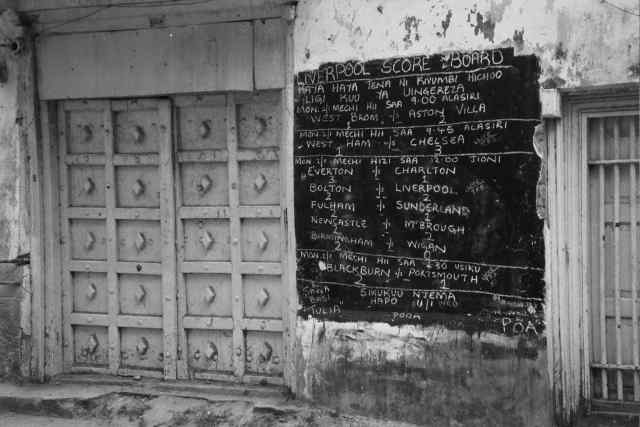 LIVERPOOL SCORE BOARD
HAYA HAYA TENA NI KIVUMBI HICHOO
LIGI KUU YA UINGEREZA
MON: 2/1 MECHI HII SAA 9:00 ALASIRI
WEST BROM -/- ASTON VILLA
1 2
MON: 2/1 MECHI HII SAA 9:45 ALASIRI
WEST HAM -/- CHELSEA
1 3
MON 2/1 MECHI HIZI SAA 12:00 JIONI
EVERTON -/- CHARLTON
3 1
BOLTON -/- LIVERPOOL
2 2
FULHAM -/- SUNDERLAND
2 1
NEWCASTLE -/- M'BROUGH
2 2
BIRMINGHAM -/- WIGAN
2 0
MON: 2/1 MECHI HII SAA 2:30 USIKU
BLACKBURN -/- PORTSMOUTH
2 1
SIKUKUU NJEMA
BASI HAPO
TULIA POPA
POA